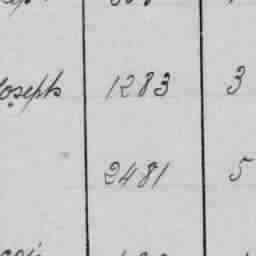 Joseph 1283 3
2481 5